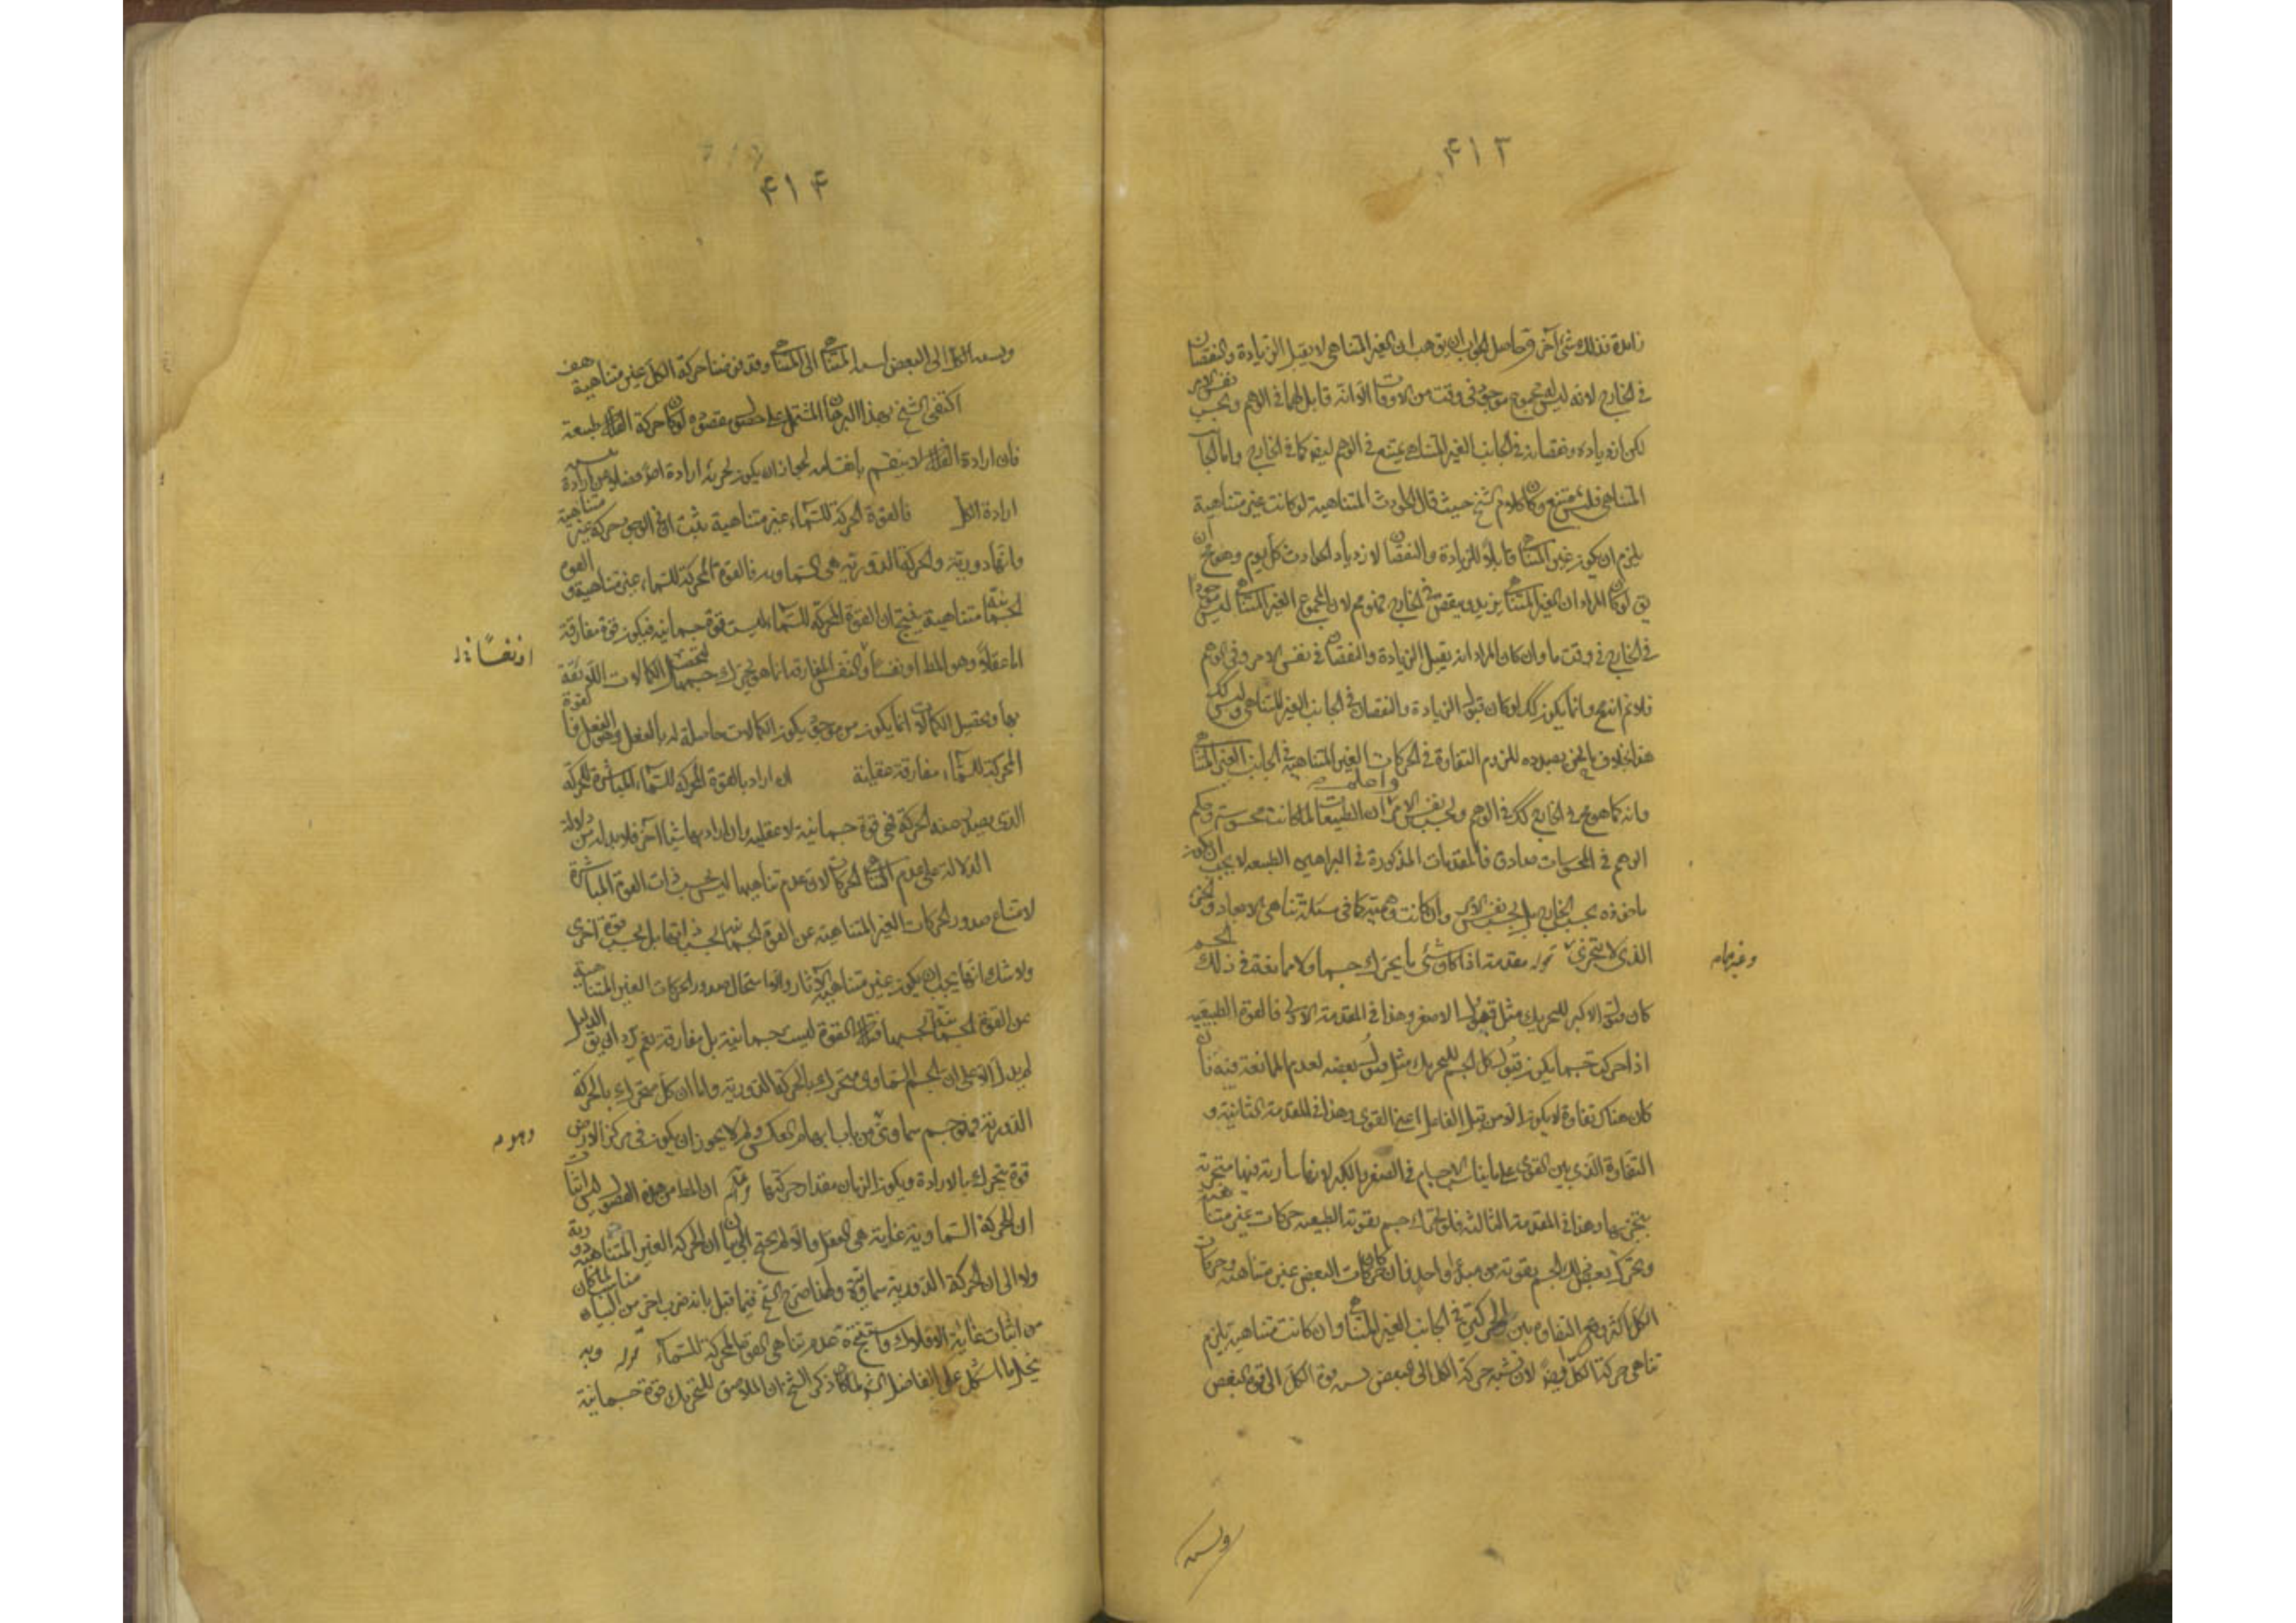 ۴۱۳
زائدة فذلك شئ آخر وحاصل الجواب ان يق هب ان الغير المتناهى لا يقبل الزيادة والنقصان
فى الخارج لانه ليس مجموع موجود فى وقت من الاوقات الا انه قابل لهما فى الوهم وبحسب نفس الامر
لكن ازدياده ونقصانه فى الجانب الغير المتناهى يمتنع فى الوهم ايضا كما فى الخارج واما الجانب
المتناهى فليس يمتنع وكان كلام الشيخ حيث قال الحوادث المتناهية لو كانت غير متناهية
يلزم ان يكون غير المتناهى قابلا للزيادة والنقصان لازدياد الحوادث كل يوم وهو مح
يق لو كان المراد ان الغير المتناهى يزيد وينقص فى الخارج فهو مم لان المجموع الغير المتناهى ليس موجودا
فى الخارج فى وقت ما وان كان المراد انه يقبل الزيادة والنقصان فى نفس الامر وفى الوهم
فلا نم انه مح وانما يكون كك لو كان قبول الزيادة والنقصان فى الجانب الغير المتناهى وليس كك
هذا بخلاف ما نحن بصدده للزوم التفاوت فى الحركات الغير المتناهية فى الجانب الغير المتناهى
وانه كما هو مح فى الخارج كك فى الوهم وبحسب نفس الامر واعلم ان الطبيعيات لما كانت محسوسة وحكم
الوهم فى المحسوسات صادق فالمقدمات المذكورة فى البراهين الطبيعية لا يجب ان يكون
ماخوذة بحسب الخارج بل بحسب نفس الامر وان كانت وهمية كما فى مسئلة تناهى الابعاد والجزء
الذى لا يتجزى قوله مقدمة اذا كان شئ ما يحرك جسما ولا ممانعة فى ذلك الجسم
وغيرهما م
كان قبول الاكبر للتحريك مثل قبول الاصغر وهذا فى المقدمة الاولى فالقوة الطبيعية
اذا حركت جسما يكون قبول كل الجسم للتحريك مثل قبول بعضه لعدم الممانعة فيه فان
كان هناك تفاوت لا يكون الا من قبل الفاعل اعنى القوى وهذا فى المقدمة الثانية و
التفاوت الذى بين القوى على ما يناسب الاجسام فى الصغر والكبر لانها سارية فيها متجزية
بتجزيها وهذا فى المقدمة الثالثة فلو تحرك جسم بقوته الطبيعية حركات غير متناهية
وتحرك بعض ذلك الجسم بقوته من مبدء واحد فان كان حركات البعض غير متناهية وحركات
الكل اكثر وقع التفاوت بين الحركتين فى الجانب الغير المتناهى وان كانت متناهية يلزم
تناهى حركة الكل ايضا لان نسبة حركة الكل الى البعض نسبة قوة الكل الى قوة البعض
ونسبة
۴۱۴
ونسبة الكل الى البعض نسبة المتناهى الى المتناهى وقد فرضنا حركة الكل غير متناهية هف
اكتفى الشيخ بهذا البرهان المشتمل على مقصوده لو كان حركة الفلك طبيعية
فان ارادة الفلك لا ينقسم بانقسامه لجواز ان يكون لجزئه ارادة اصلا فضلا عن ارادة
ارادة الكل فالقوة المحركة للسماء غير متناهية ثبت ان فى الوجود حركة غير متناهية
وانها دورية والحركة الدورية هى السماوية فالقوة المحركة للسماء غير متناهية والقوة
الجسمانية متناهية ينتج ان القوة المحركة للسماء ليست قوة جسمانية فيكون قوة مفارقة
او نفسا
اما عقلا وهو المط او نفسا والنفس المفارقة انما هى تحرك جسمها لتحصيل الكمالات اللايقة
بها وتحصيل الكمالات انما يكون من موجود يكون الكمالات حاصلة له بالفعل وهو العقل فالقوة
المحركة للسماء مفارقة عقلية ان اراد بالقوة المحركة للسماء المباشرة للحركة
الذى يصدر عنه الحركة فهى قوة جسمانية لا عقلية وان اراد بها شيئا آخر فلا بد له من دلالة
الدلالة على عدم تناهى الحركات لان عدم تناهيها ليس بحسب ذات القوة المباشرة
لامتناع صدور الحركات الغير المتناهية عن القوة الجسمانية بحسب ذاتها بل بحسب قوة اخرى
ولا شك انها يجب ان يكون غير متناهية الآثار والا استحال صدور الحركات الغير المتناهية
عن القوة الجسمانية بحسبها فتلك القوة ليست جسمانية بل مفارقة نعم يرد ان يق الدليل
لم يدل الا على ان الجسم السماوى متحرك بالحركة الدورية واما ان كل متحرك بالحركة
الدورية فهو جسم سماوى من باب ايهام العكس ولم لا يجوز ان يكون فى مركز الارض
قوة يتحرك بالارادة ويكون الزمان مقدار حركتها واعلم ان المط من هذه الفصول ليس اثبات
ان للحركة السماوية غاية هى العقل والا لم يحتج الى بيان ان الحركة الغير المتناهية دورية
ولا الى ان الحركة الدورية سماوية ولهذا صرح الشيخ فيما قبل بانه ضرب اخر من البيان
من اثبات غاية الافلاك ونتيجة عدم تناهى القوة المحركة للسماء قوله وبه
ينحل ما اشكل على الفاضل الشارح لما كان ذكر الشيخ ان الملاصق للتحريك قوة جسمانية